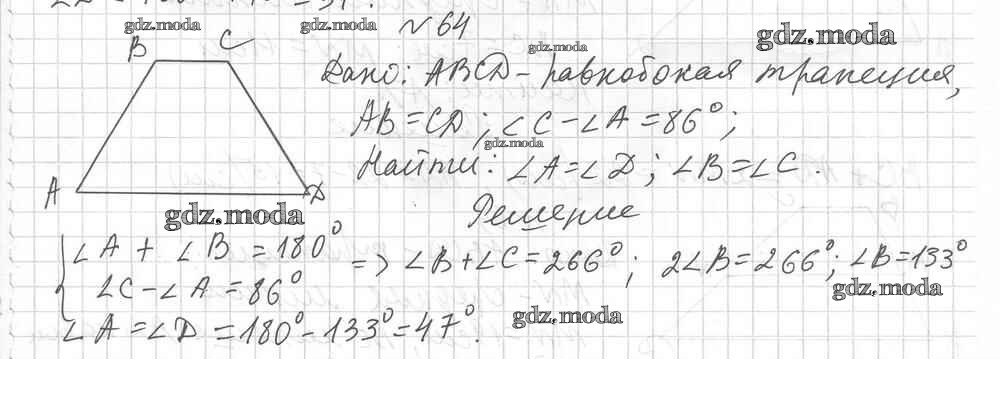 gdz.moda gdz.moda № 64 gdz.moda gdz.moda
B C
Дано: ABCD – равнобокая трапеция,
AB = CD; ∠C – ∠A = 86°;
gdz.moda
Найти: ∠A = ∠D; ∠B = ∠C.
A D
gdz.moda Решение
∠A + ∠B = 180°
∠C – ∠A = 86° => ∠B + ∠C = 266°; 2∠B = 266°; ∠B = 133°
gdz.moda
∠A = ∠D = 180° – 133° = 47°.
gdz.moda